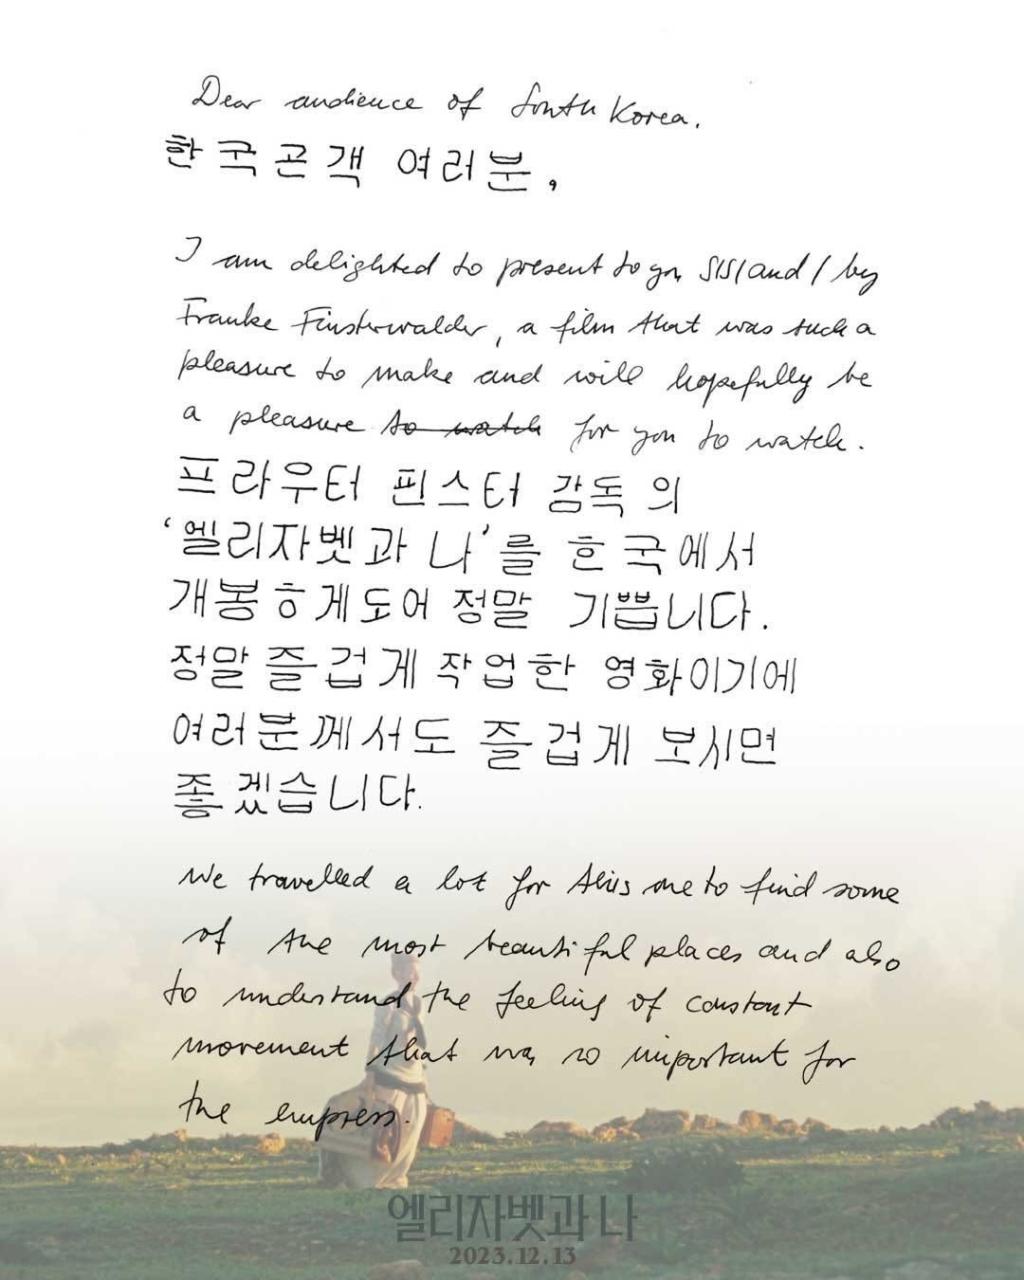 Dear audience of South Korea.
한국곤객 여러분,
I am delighted to present to you SISI and I by
Frauke Finsterwalder, a film that was such a
pleasure to make and will hopefully be
a pleasure to watch for you to watch.
프라우터 핀스터 감독 의
‘엘리자벳과 나’를 한국에서
개봉ㅎ게도어 정말 기쁩니다.
정말 즐겁게 작업한 영화이기에
여러분께서도 즐겁게 보시면
좋겠습니다.
We travelled a lot for this one to find some
of the most beautiful places and also
to understand the feeling of constant
movement that was so important for
the empress.
엘리자벳과 나
2023.12.13